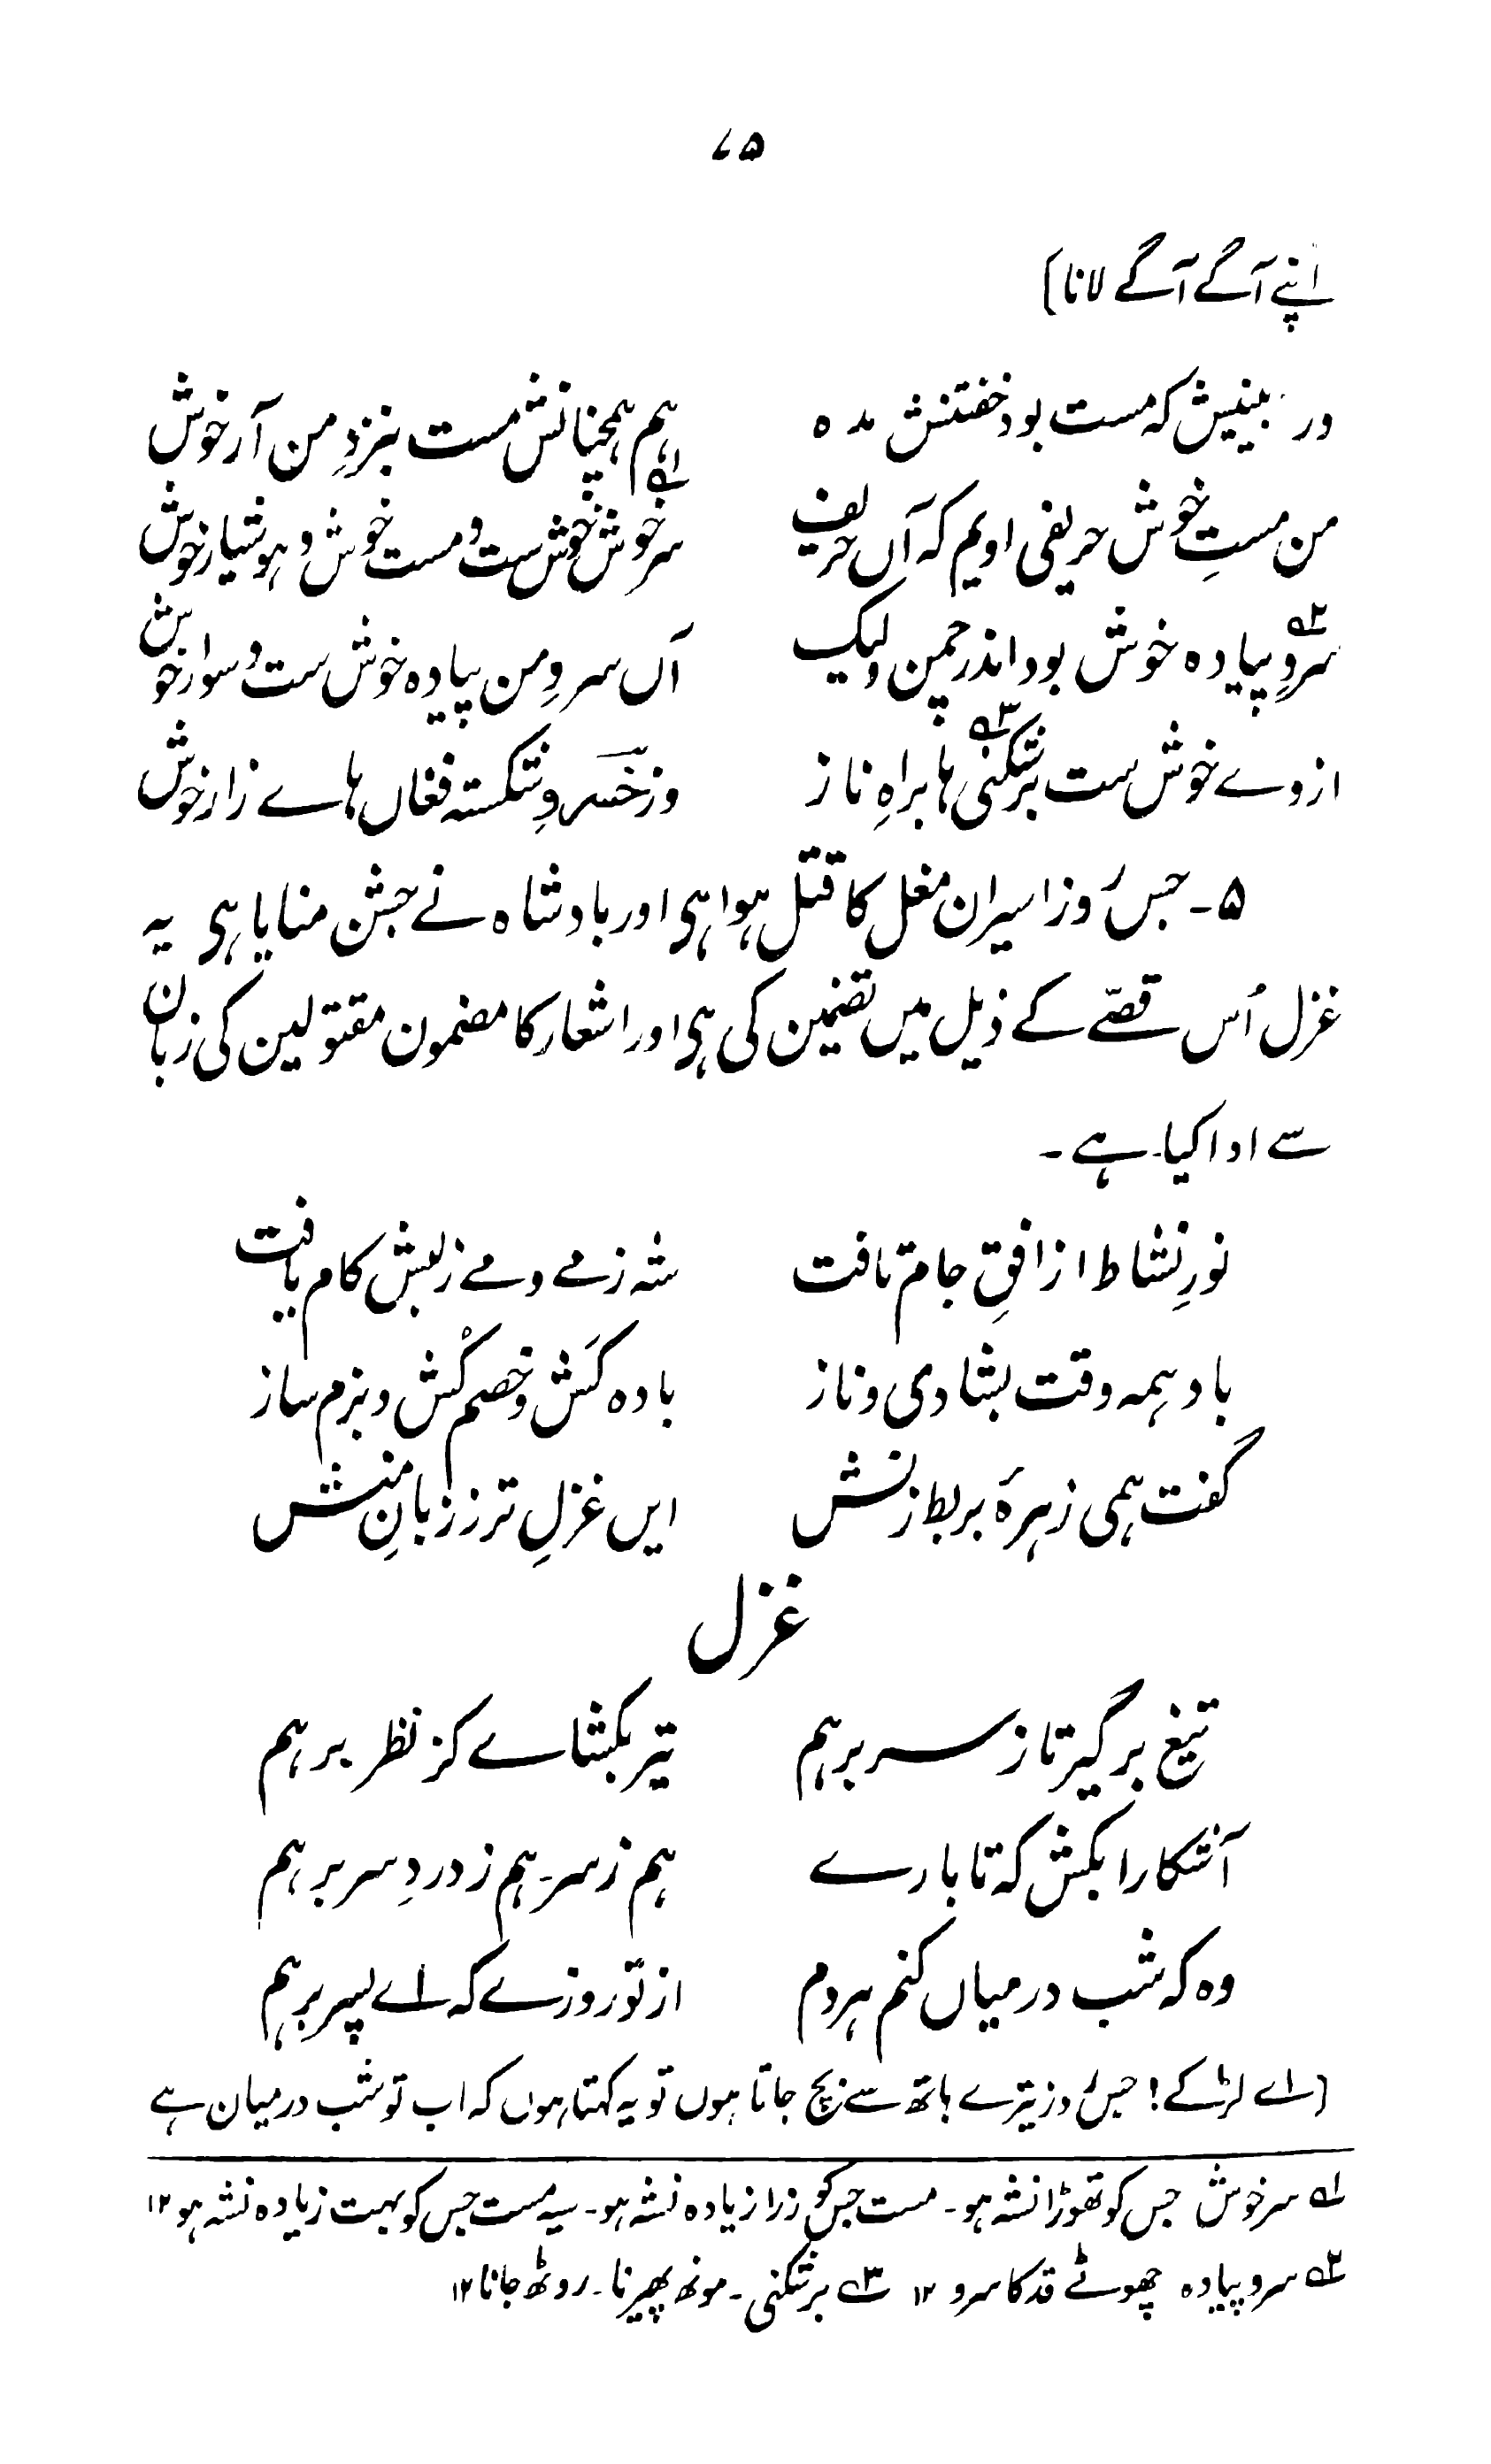 ۷۵
اپنے آگے آگے لانا)
ور بینیش کہ مست بود خفتنش مدہ ہم ہمچنانش مست بنزدِ من آر خوش
من مستِ خوش حریفی اویم کہ آں حریف سرخوش۱ خوش ست و مست خوش و ہوشیار خوش
سروِ پیادہ۲ خوش بود اندر چمن ولیک آں سروِ من پیادہ خوش ست و سوار خوش
از وے خوش ست برشکنی۳ ہا براہِ ناز وز خسروِ شکستہ فغاں ہاے زار خوش
۵۔ جس روز اسیران مغل کا قتل ہوا ہی اور بادشاہ نے جشن منایا ہی یہ
غزل اُس قصّے کے ذیل میں تضمین کی ہی اور اشعار کا مضمون مقتولین کی زبان
سے ادا کیا ہے۔
نورِ نشاط از افقِ جام تافت شہ زمے و مے زلبش کام یافت
باد ہمہ وقت بشادی و ناز بادہ کَش و خصم کُش و بزم ساز
گفت ہمی زہرۂ بربط زنش ایں غزلِ تر ز زبانِ منش
غزل
تیغ برگیر تا ز سر برہم تیر بکشاے کز نظر برہم
آشکارا بکش کہ تا بارے ہم ز سر۔ ہم ز دردِ سر برہم
وہ کہ شب درمیاں کنم ہردم از تو روزے کہ اے پسر برہم
(اے لڑکے! جس روز تیرے ہاتھ سے بچ جاتا ہوں تو یہ کہتا ہوں کہ اب تو شب درمیان ہے
۱ سرخوش جس کو تھوڑا نشہ ہو۔ مست جس کو ذرا زیادہ نشہ ہو۔ سیہ مست جس کو بہت زیادہ نشہ ہو ۱۲
۲ سرو پیادہ چھوٹے قد کا سرو ۱۲ ۳ برشکنی۔ مونھ پھیرنا۔ روٹھ جانا ۱۲